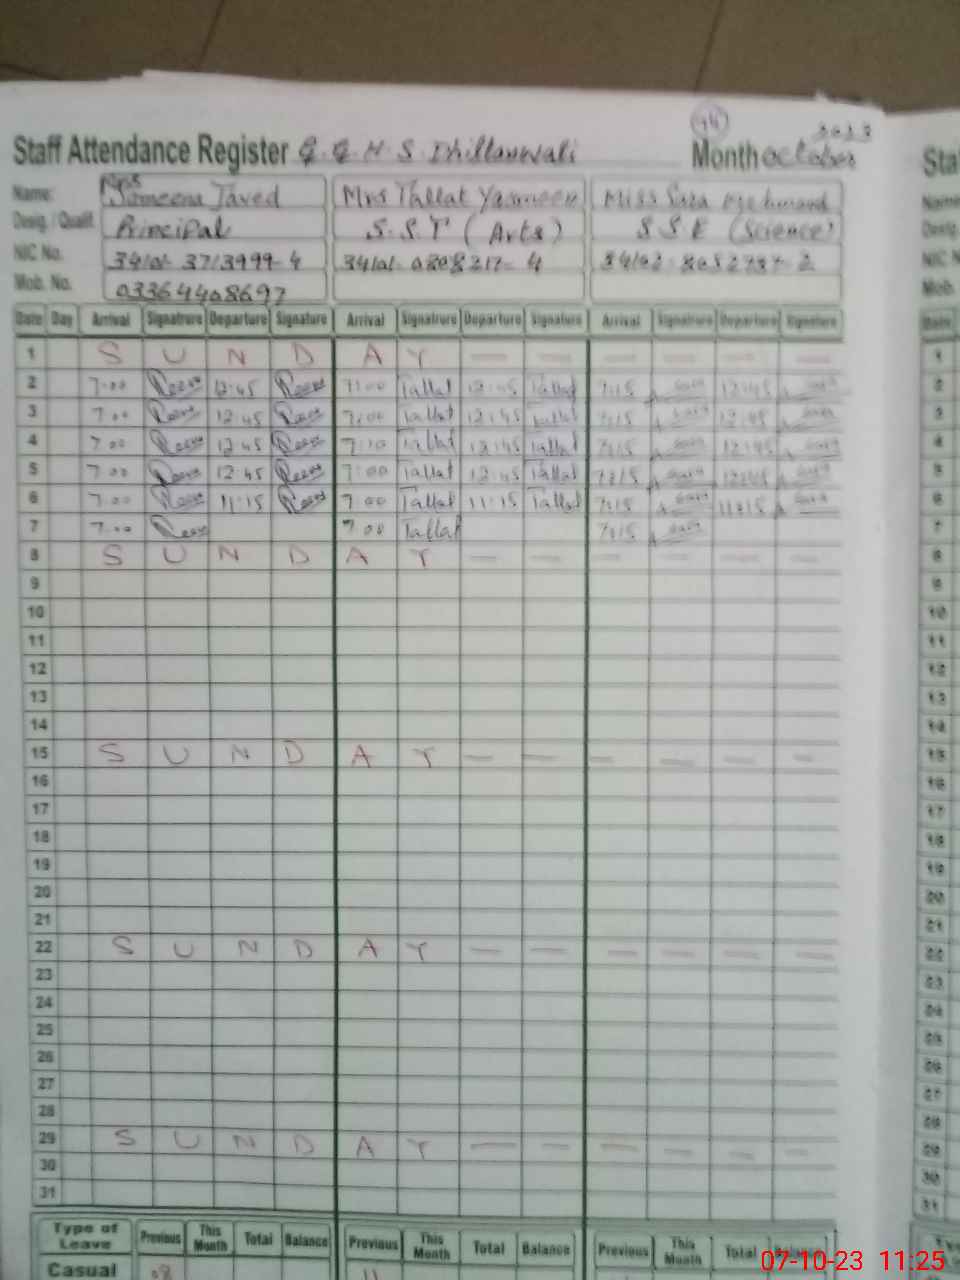 44
2023
Staff Attendance Register G.G.H.S. Dhillanwali Month October
Name: Mrs Sameena Javed Mrs Tallat Yasmeen Miss Sara Mehmood
Desig. / Qualif. Principal S.S.T (Arts) S S E (Science)
NIC No.
Mob. No. 03364408697
Date Day Arrival Signatrure Departure Signature Arrival Signatrure Departure Signature Arrival Signatrure Departure Signature
1 S U N D A Y — — — — — —
2 7:00 12:45 7:00 Tallat 12:45 Tallat 7:15 Sara 12:45 Sara
3 7:00 12:45 7:00 Tallat 12:45 Tallat 7:15 Sara 12:45 Sara
4 7:00 12:45 Tallat 12:45 Tallat 7:15 Sara 12:45 Sara
5 7:00 12:45 7:00 Tallat 12:45 Tallat 7:15 Sara 12:45 Sara
6 7:00 11:15 7:00 Tallat 11:15 Tallat 7:15 Sara 11:15 Sara
7 7:00 7:00 Tallat 7:15 Sara
8 S U N D A Y — — — — — —
9
10
11
12
13
14
15 S U N D A Y — — — — — —
16
17
18
19
20
21
22 S U N D A Y — — — — — —
23
24
25
26
27
28
29 S U N D A Y — — — — — —
30
31
Type of Leave Previous This Month Total Balance Previous This Month Total Balance Previous This Month Total Balance
Casual 08 11
07-10-23 11:25